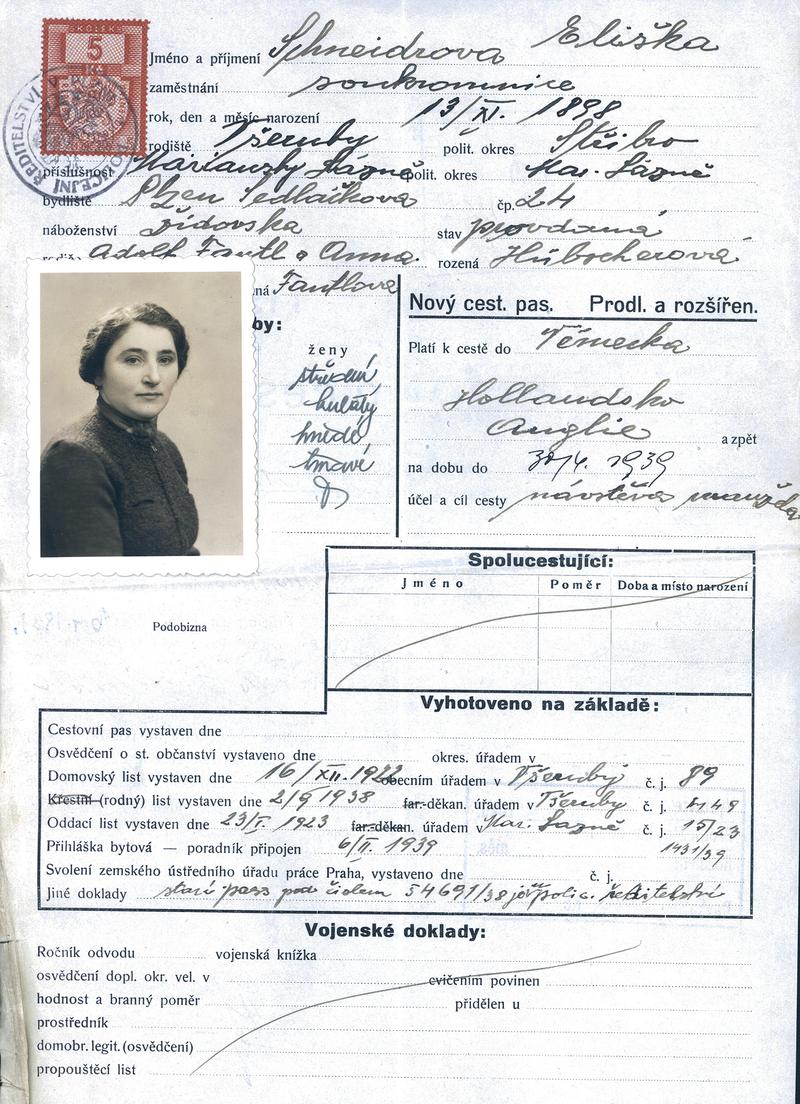 KOLEK
5
Kč
ŘEDITELSTVÍ
POLICEJNÍ
Jméno a příjmení Schneidrova Eliška
zaměstnání soukromnice
rok, den a měsíc narození 13/XI. 1898
rodiště Všeruby polit. okres Stříbro
příslušnost Marianzky Lázně polit. okres Mar. Lázně
bydliště Plzen Sedláčkova čp. 24
náboženství židovska stav provdaná
Adolf Fantl a Anna rozená Hübscherová
ná Fantlova
by:
ženy
střední
kulatý
hnědé
tmavé
Nový cest. pas. Prodl. a rozšířen.
Platí k cestě do Německa
Hollandsko
Anglie a zpět
na dobu do 30/4. 1939
účel a cíl cesty návštěva manžela
Spolucestující:
Jméno Poměr Doba a místo narození
Podobizna
Vyhotoveno na základě:
Cestovní pas vystaven dne
Osvědčení o st. občanství vystaveno dne okres. úřadem v
Domovský list vystaven dne 16/XII. 1922 obecním úřadem v Všeruby č. j. 89
Křestní (rodný) list vystaven dne 2/9 1938 far.-děkan. úřadem v Všeruby č. j. 149
Oddací list vystaven dne 23/I. 1923 far.-děkan. úřadem v Mar. Lazně č. j. 15/23
Přihláška bytová — poradník připojen 6/II. 1939 1431/39
Svolení zemského ústředního úřadu práce Praha, vystaveno dne č. j.
Jiné doklady starý pass pod čislem 54691/38 polic. ředitelství
Vojenské doklady:
Ročník odvodu vojenská knížka
osvědčení dopl. okr. vel. v cvičením povinen
hodnost a branný poměr přidělen u
prostředník
domobr. legit. (osvědčení)
propouštěcí list